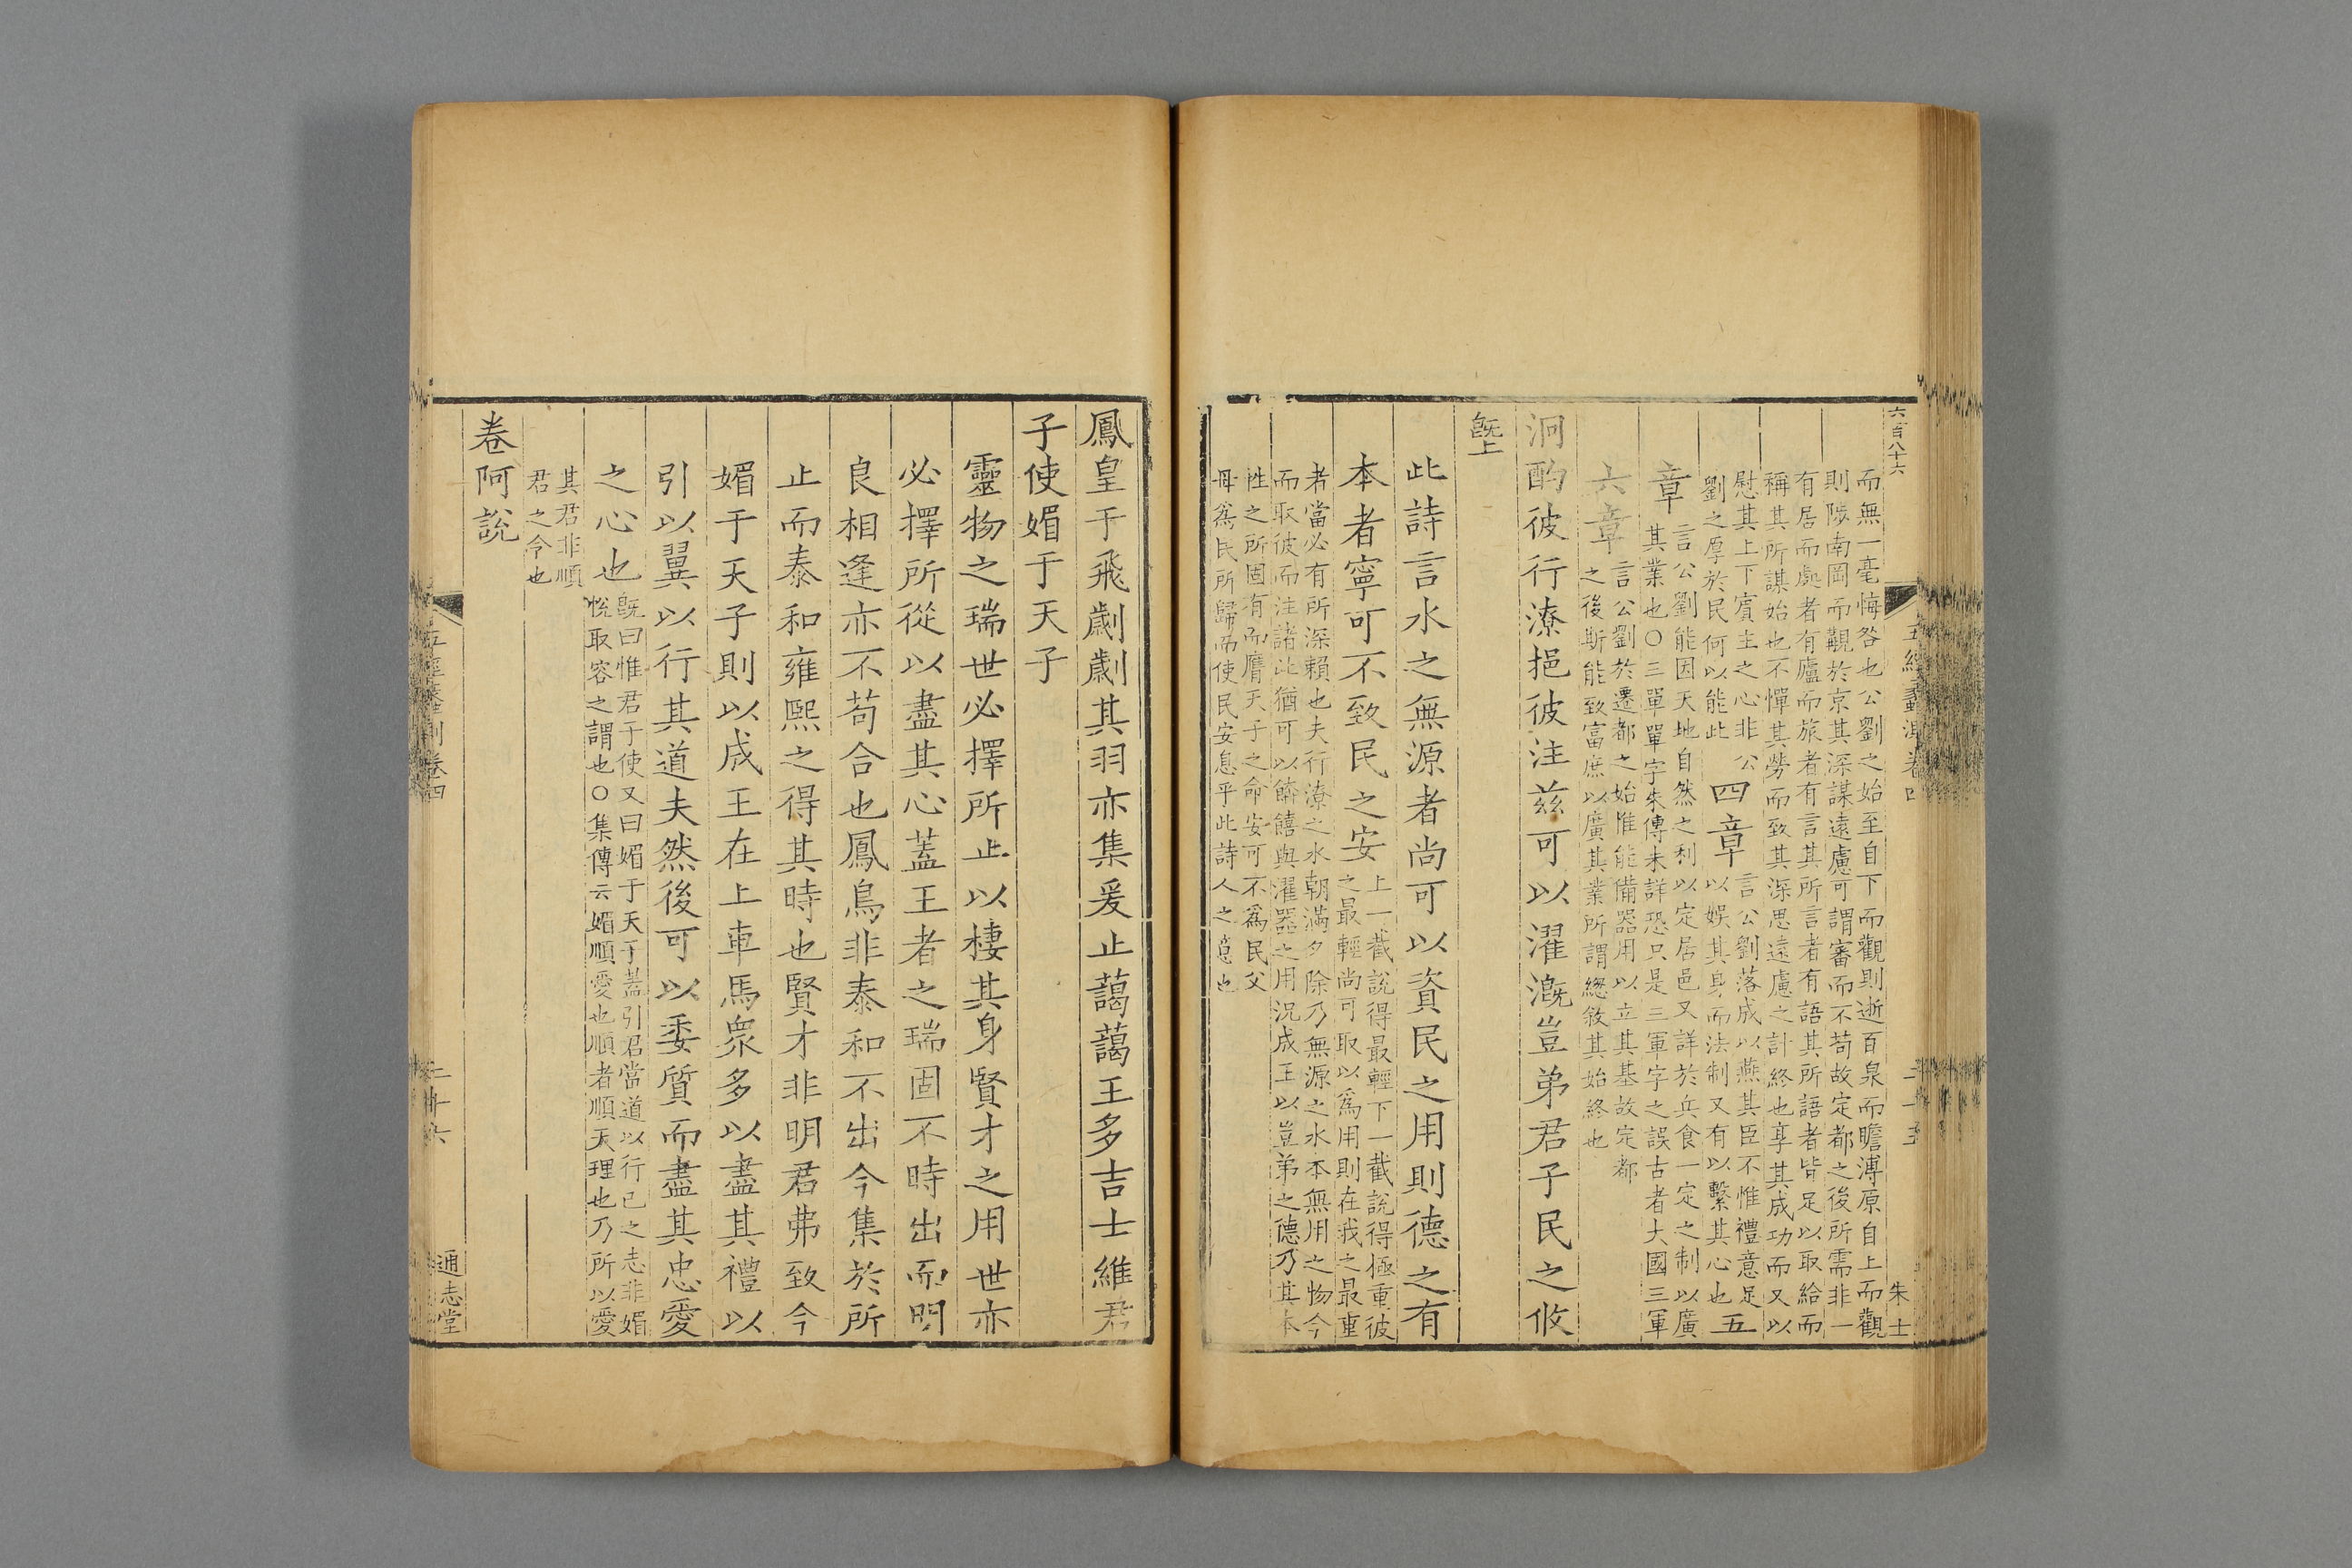 六百八十六
五經蠡測卷四
二十五
朱士
而無一毫悔咎也公劉之始至自下而觀則逝百泉而瞻溥原自上而觀
則陟南岡而觀於京其深謀遠慮可謂審而不苟故定都之後所需非一
有居而處者有廬而旅者有言其所言者有語其所語者皆足以取給而
稱其所謀始也不憚其勞而致其深思遠慮之計終也享其成功而又以
慰其上下賓主之心非公
劉之厚於民何以能此
四章
言公劉落成以燕其臣不惟禮意足
以娛其身而法制又有以繫其心也
五
章
言公劉能因天地自然之利以定居邑又詳於兵食一定之制以廣
其業也○三單單字朱傳未詳恐只是三軍字之誤古者大國三軍
六章
言公劉於遷都之始惟能備器用以立其基故定都
之後斯能致富庶以廣其業所謂總敘其始終也
泂酌彼行潦挹彼注茲可以濯溉豈弟君子民之攸
塈
此詩言水之無源者尚可以資民之用則德之有
本者寧可不致民之安
上一截說得最輕下一截說得極重彼
之最輕尚可取以爲用則在我之最重
者當必有所深賴也夫行潦之水朝滿夕除乃無源之水本無用之物今
而取彼而注諸此猶可以餴饎與濯器之用況成王以豈弟之德乃其本
性之所固有而膺天子之命安可不爲民父
母爲民所歸而使民安息乎此詩人之意也
鳳皇于飛劌劌其羽亦集爰止藹藹王多吉士維君
子使媚于天子
靈物之瑞世必擇所止以棲其身賢才之用世亦
必擇所從以盡其心蓋王者之瑞固不時出而明
良相逢亦不苟合也鳳鳥非泰和不出今集於所
止而泰和雍熙之得其時也賢才非明君弗致今
媚于天子則以成王在上車馬衆多以盡其禮以
引以翼以行其道夫然後可以委質而盡其忠愛
之心也
旣曰惟君子使又曰媚于天子蓋引君當道以行已之志非媚
悅取容之謂也○集傳云媚順愛也順者順天理也乃所以愛
其君非順
君之令也
卷阿說
五經蠡測卷四
二十六
通志堂